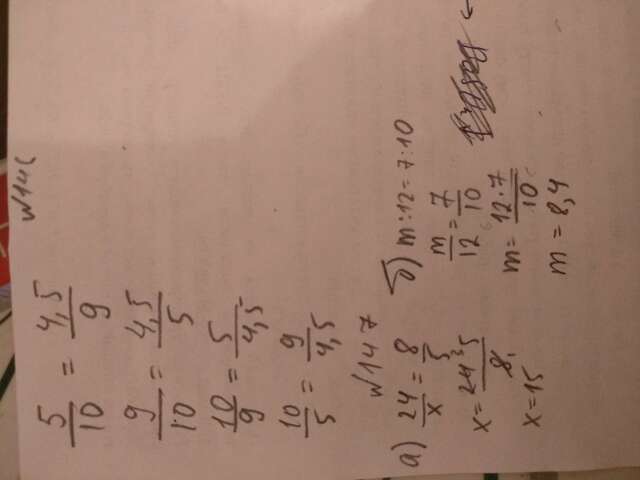 5/10 = 4,5/9
9/10 = 4,5/5
10/9 = 5/4,5
10/5 = 9/4,5
№147
а) 24/x = 8/5
x = 24·5/8
x = 15
б) m:12 = 7:10
m/12 = 7/10
m = 12·7/10
m = 8,4